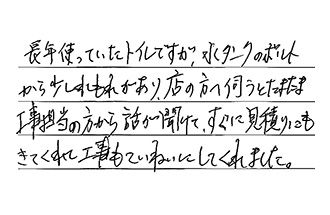 長年使っていたトイレですが、水タンクのボルト
から少し水もれがあり、店の方へ伺うとたまたま
工事担当の方から話が聞けて、すぐに見積りにも
きてくれて工事もていねいにしてくれました。